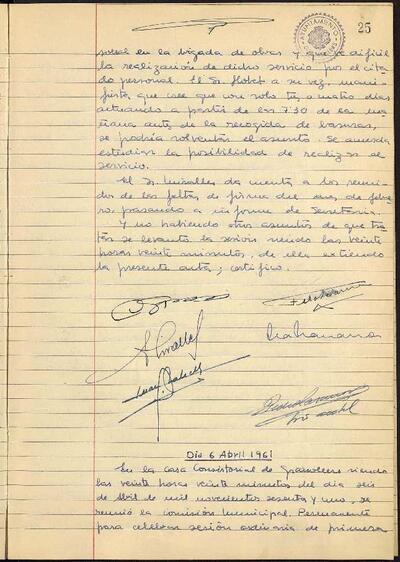 25
AYUNTAMIENTO
sonal en la brigada de obras y que ve difícil
la realización de dicho servicio por el cita
do personal. El Sr. Llobet a su vez, mani-
fiesta que cree que con solo tres o cuatro días
actuando a partir de las 7'30 de la ma
ñana antes de la recogida de basuras,
se podría solventar el asunto. Se acuerda
estudiar la posibilidad de realizar el
servicio.
El Sr. Miralles da cuenta a los reuni
dos de las faltas de firma del mes de febre
ro, pasando a informe de Secretaría.
Y no habiendo otros asuntos de que tra
tar se levanta la sesión siendo las veinte
horas veinte minutos, de ella extiendo
la presente acta; certifico.
Dia 6 Abril 1961
En la casa Consistorial de Granollers siendo
las veinte horas veinte minutos del día seis
de Abril de mil novecientos sesenta y uno, se
reunió la comisión Municipal Permanente
para celebrar sesión ordinaria de primera